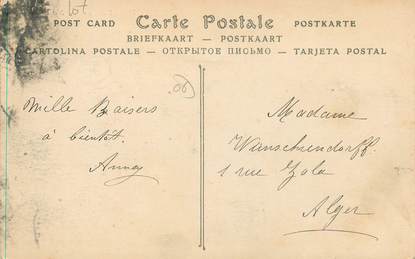 POST CARD Carte Postale POSTKARTE
BRIEFKAART — POSTKAART
CARTOLINA POSTALE — ОТКРЫТОЕ ПИСЬМО — TARJETA POSTAL
Mille Baisers
à bientôt.
Madame
1 rue Zola
Alger